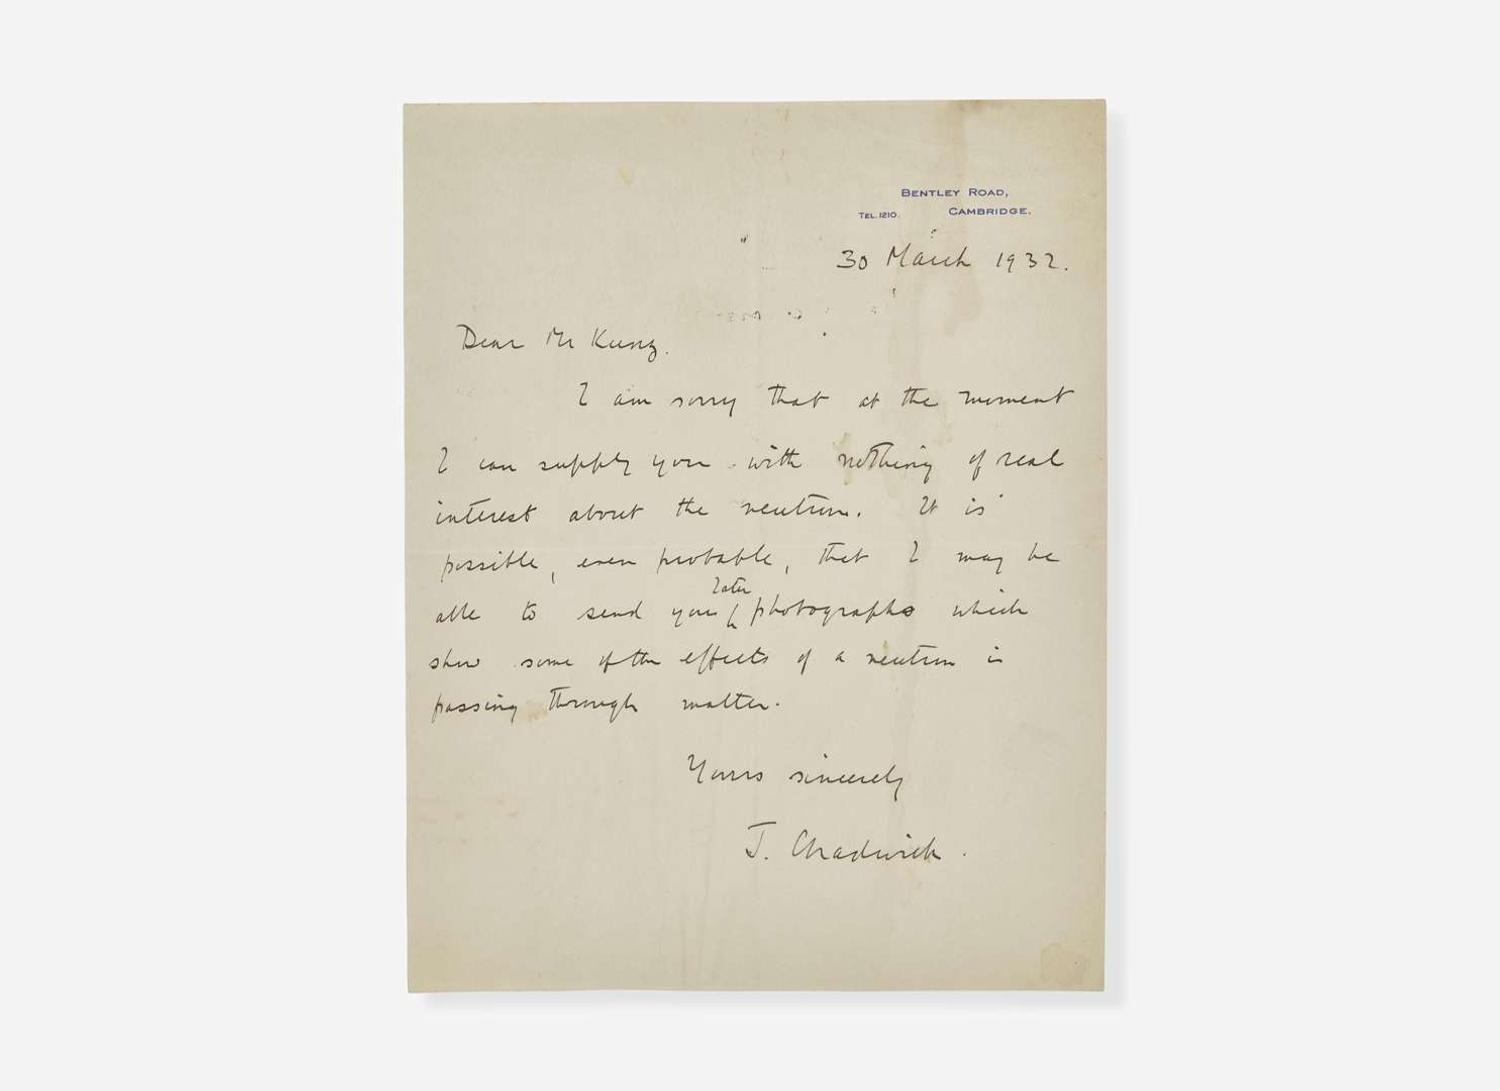 BENTLEY ROAD,
TEL. 1210. CAMBRIDGE.
30 March 1932.
Dear Mr Kunz.
I am sorry that at the moment
I can supply you with nothing of real
interest about the neutron. It is
possible, even probable, that I may be
later
able to send you photographs which
show some of the effects of a neutron in
passing through matter.
Yours sincerely
J. Chadwick.